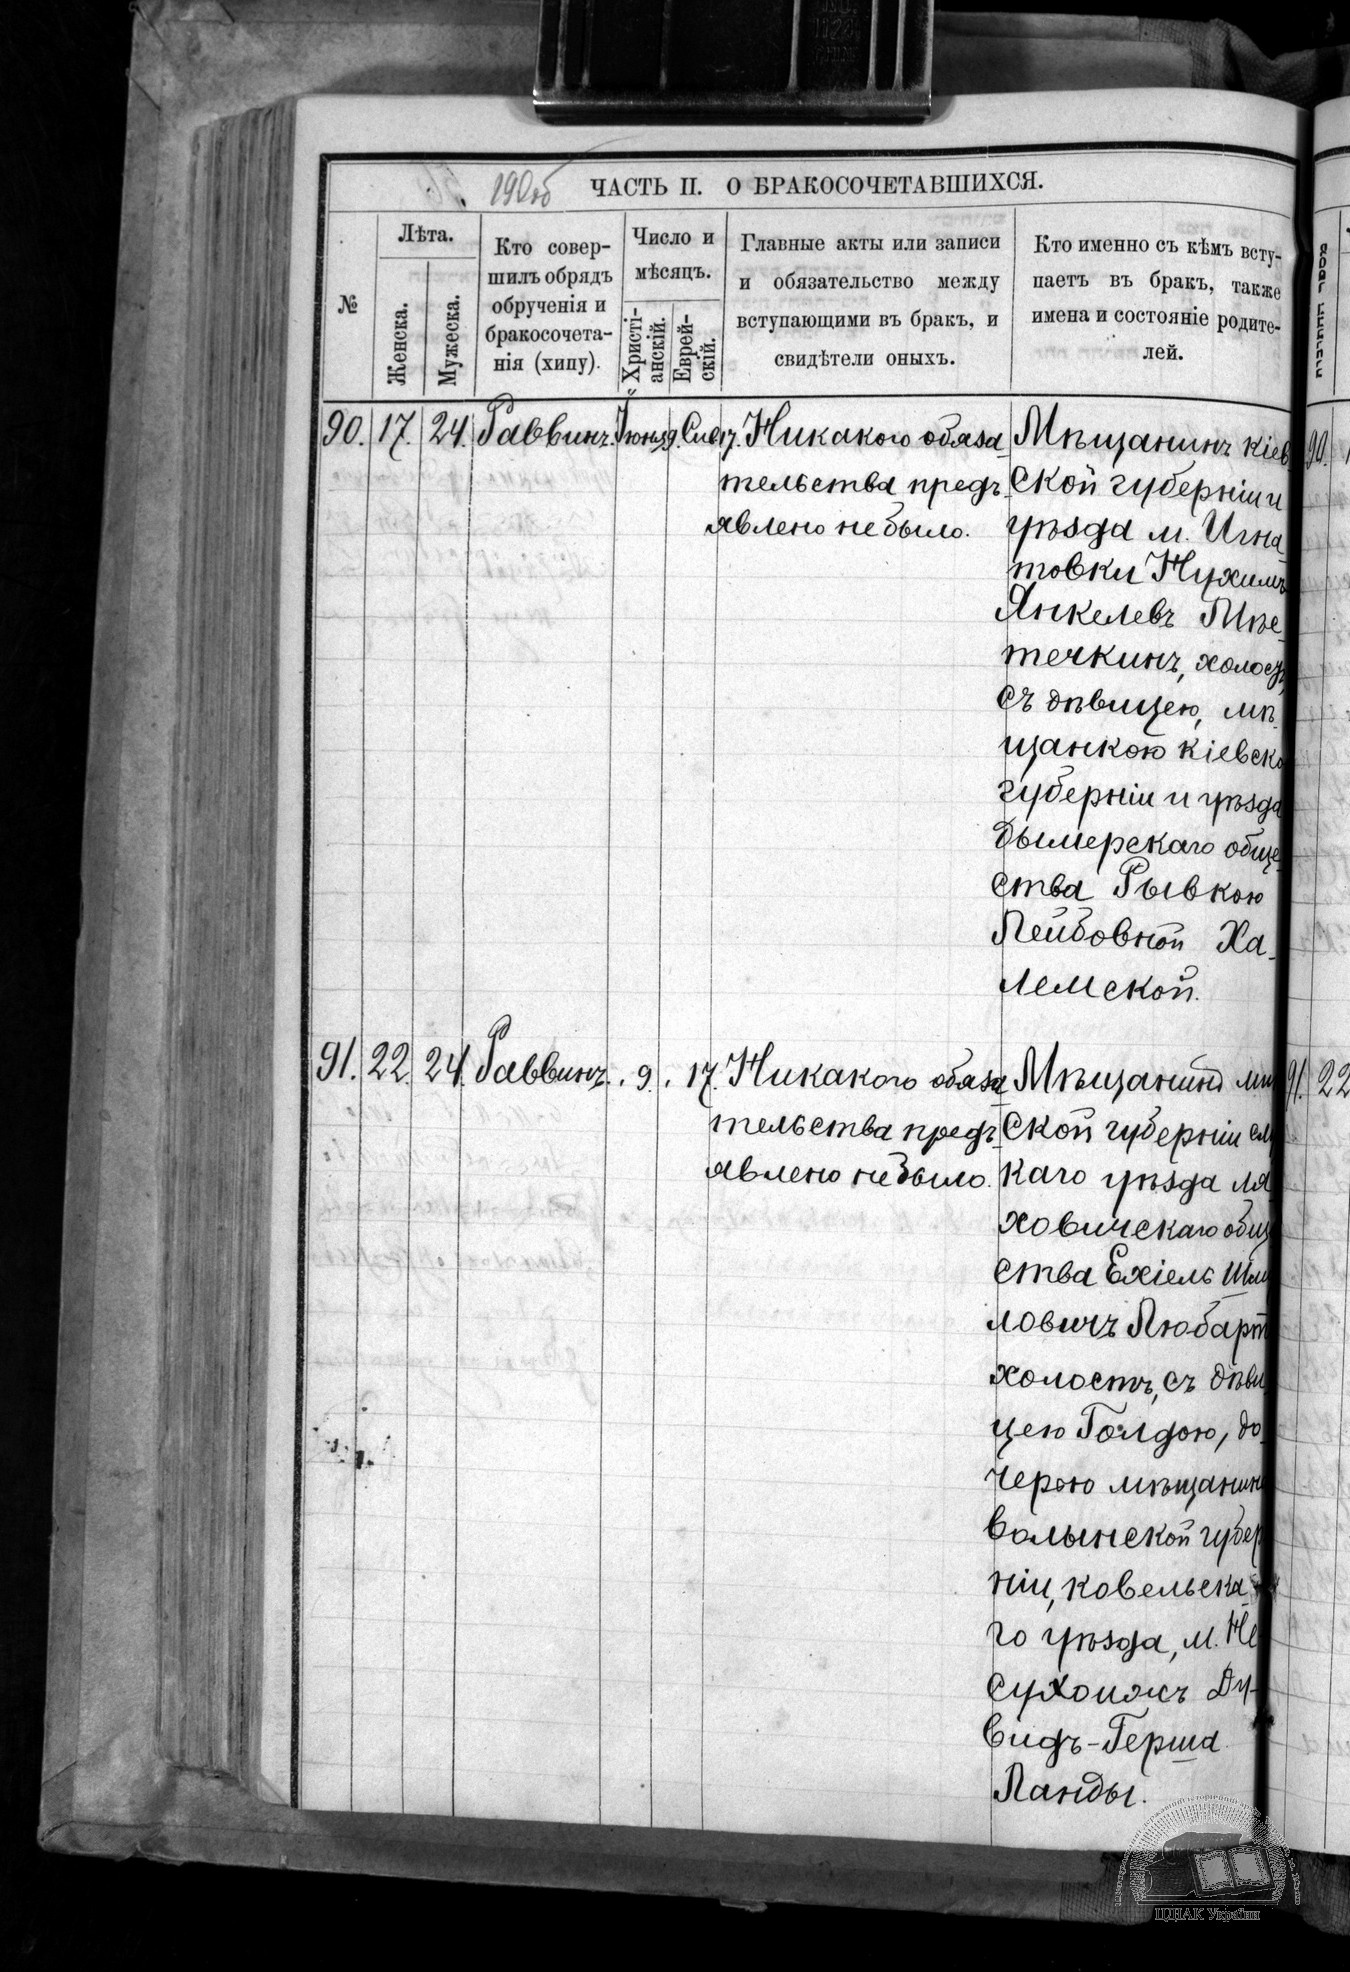 190об
ЧАСТЬ II. О БРАКОСОЧЕТАВШИХСЯ.
№
Лѣта.
Женска.
Мужеска.
Кто совер-
шилъ обрядъ
обрученія и
бракосочета-
нія (хипу).
Число и
мѣсяцъ.
Христі-
анскій.
Еврей-
скій.
Главные акты или записи
и обязательство между
вступающими въ бракъ, и
свидѣтели оныхъ.
Кто именно съ кѣмъ всту-
паетъ въ бракъ, также
имена и состояніе родите-
лей.
90. 17. 24. Раввинъ. Іюня 9. Сив 17. Никакого обяза-
тельства предъ-
явлено небыло.
Мѣщанинъ кіев
ской губерніи и
уѣзда м. Игна
товки Нухимъ
Янкелевъ
течкинъ, холостъ,
съ дѣвицею, мѣ-
щанкою кіевско
губерніи и уѣзда
дымерскаго обще-
ства Рывкою
Лейбовной Ха-
лемской.
91. 22. 24. Раввинъ. 9. 17. Никакого обяза-
тельства предъ-
явлено небыло.
Мѣщанинъ ми
ской губерніи слу
каго уѣзда ля
ховичскаго общ
ства Ехіель Шму
ловичъ Любарт
холостъ, съ дѣви
цею Голдою, до-
черою мѣщанин
Волынской губер
ніи, ковельска-
го уѣзда, м. Не
сухоижъ Ду-
видъ-Герша
Ланды.
90.
91. 22
ЦДІАК України